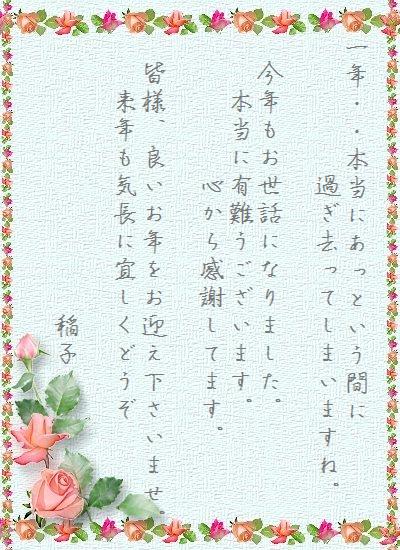 一年・・本当にあっという間に
過ぎ去ってしまいますね。
今年もお世話になりました。
本当に有難うございます。
心から感謝してます。
皆様、良いお年をお迎え下さいませ。
来年も気長に宜しくどうぞ
稲子